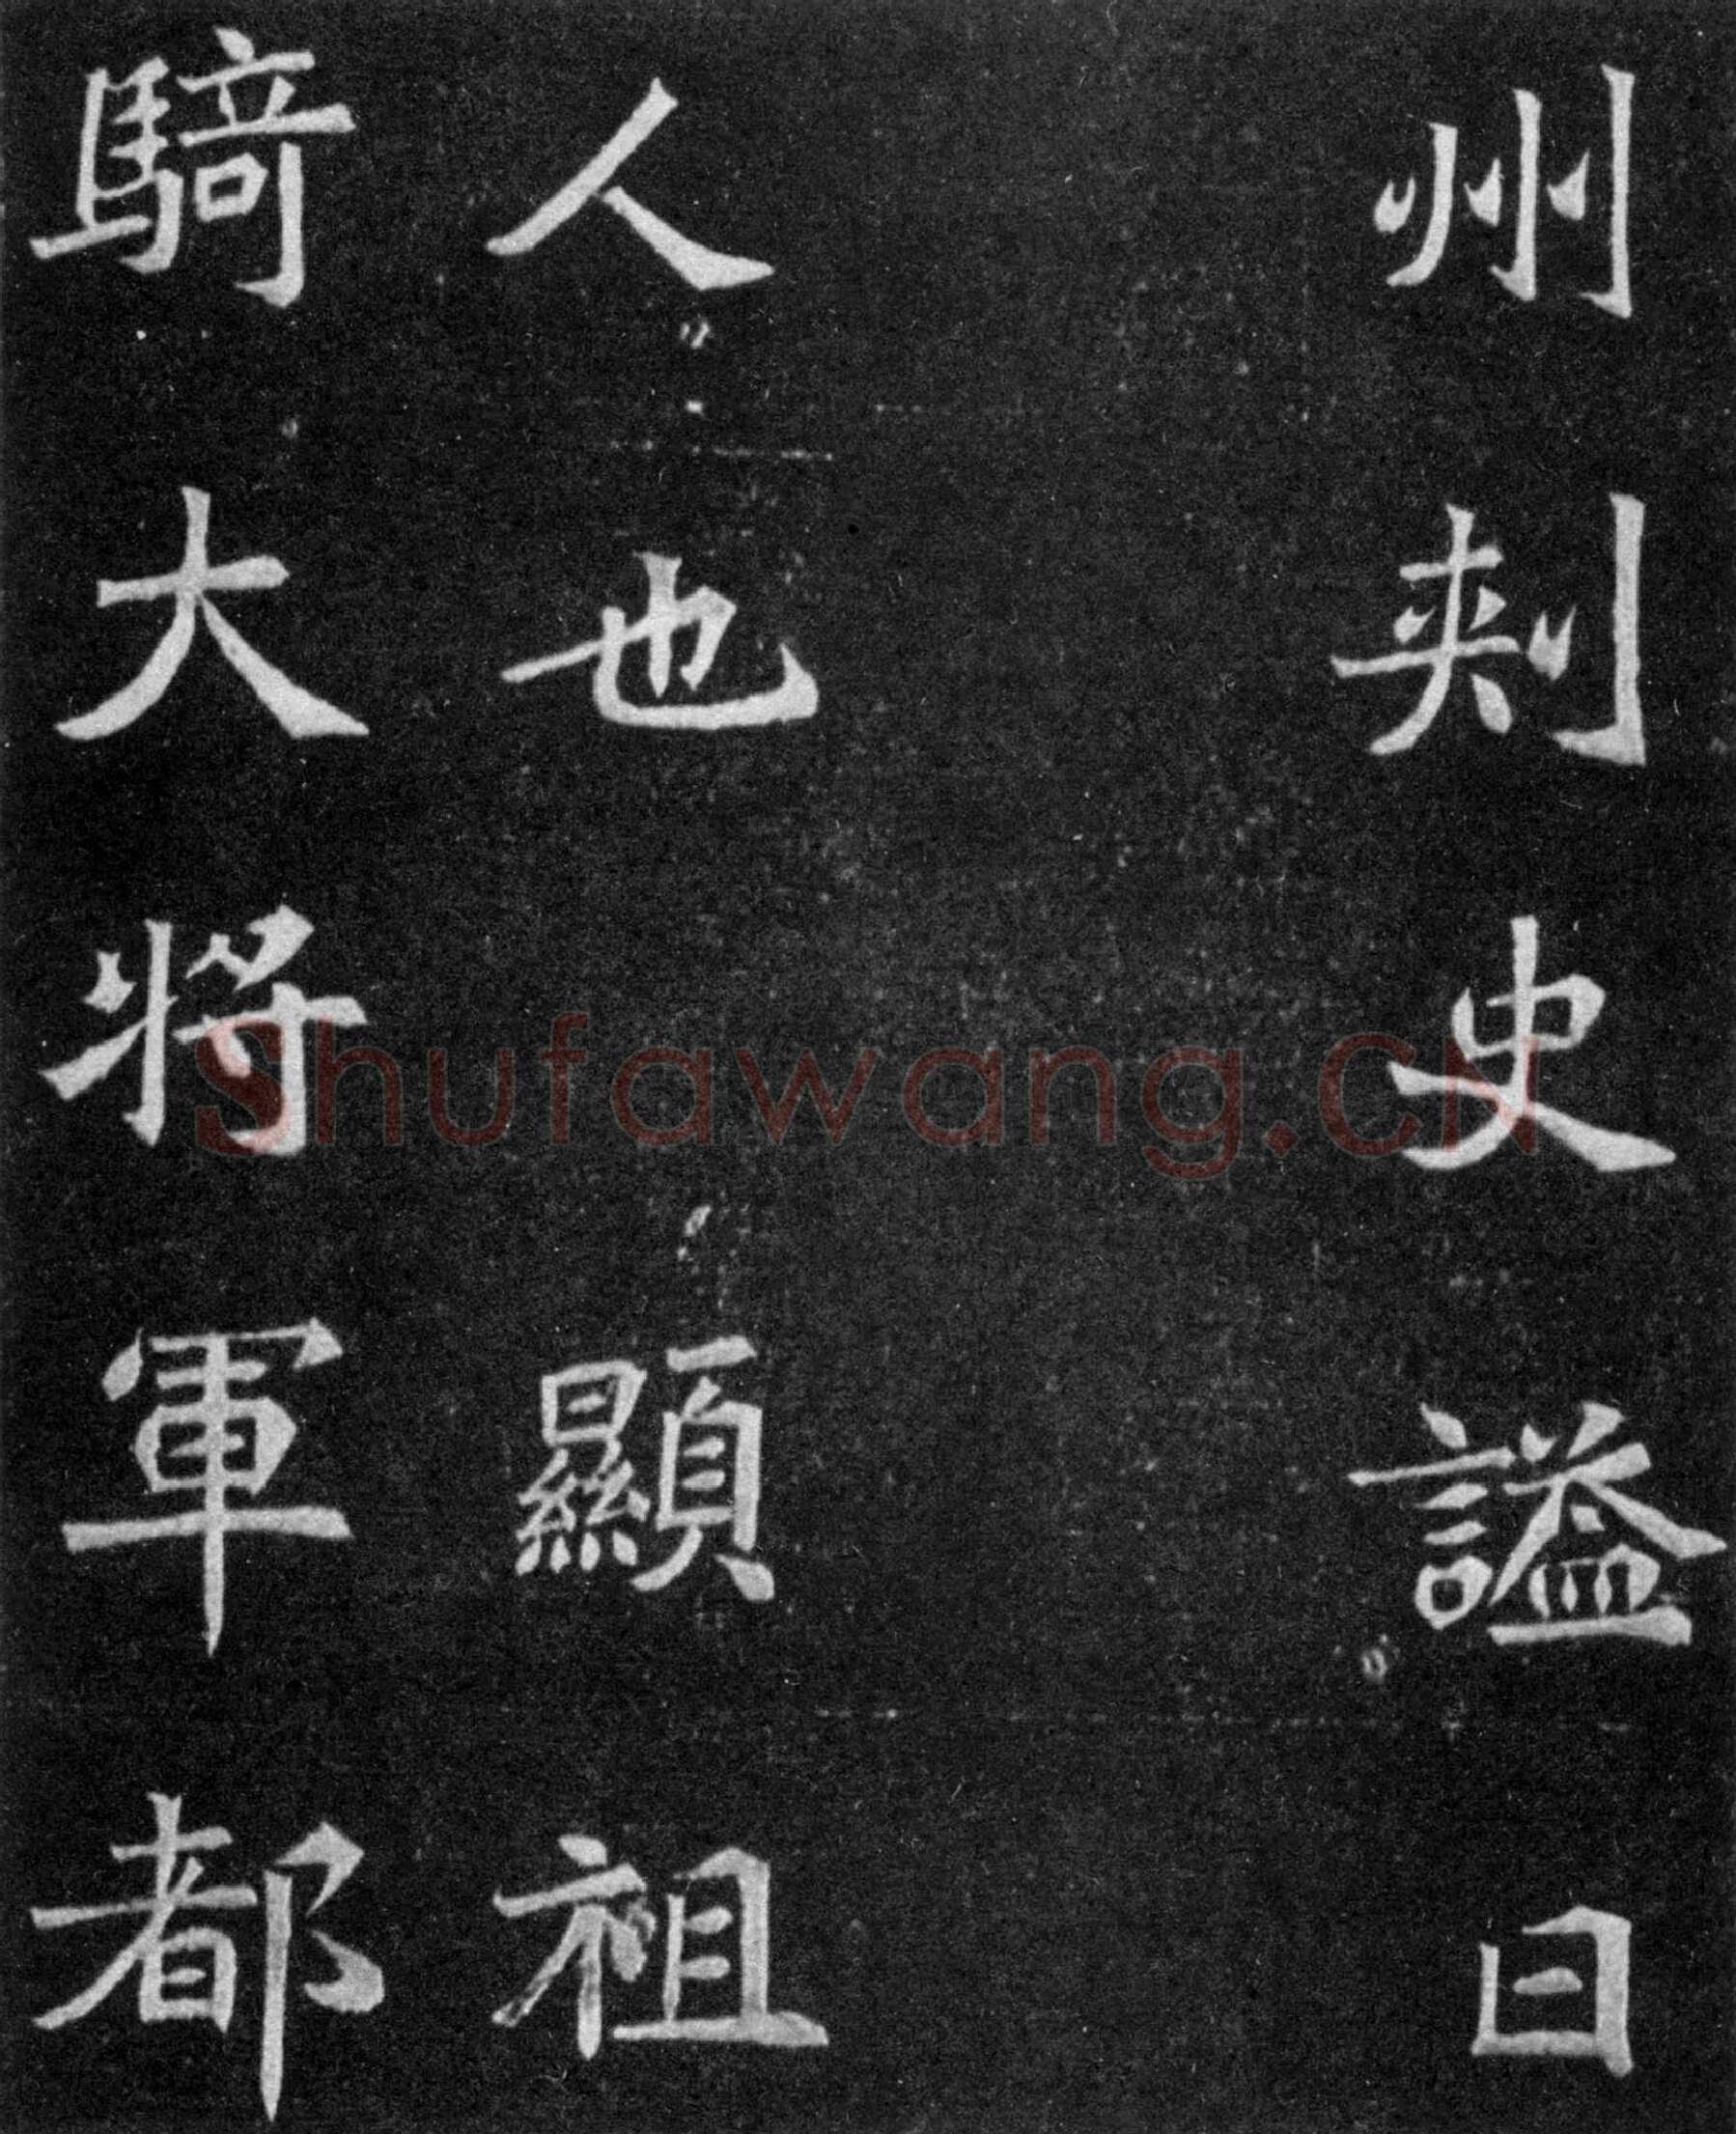 州刾史謚曰
人也顯祖
騎大將軍都
Shufawang.CN